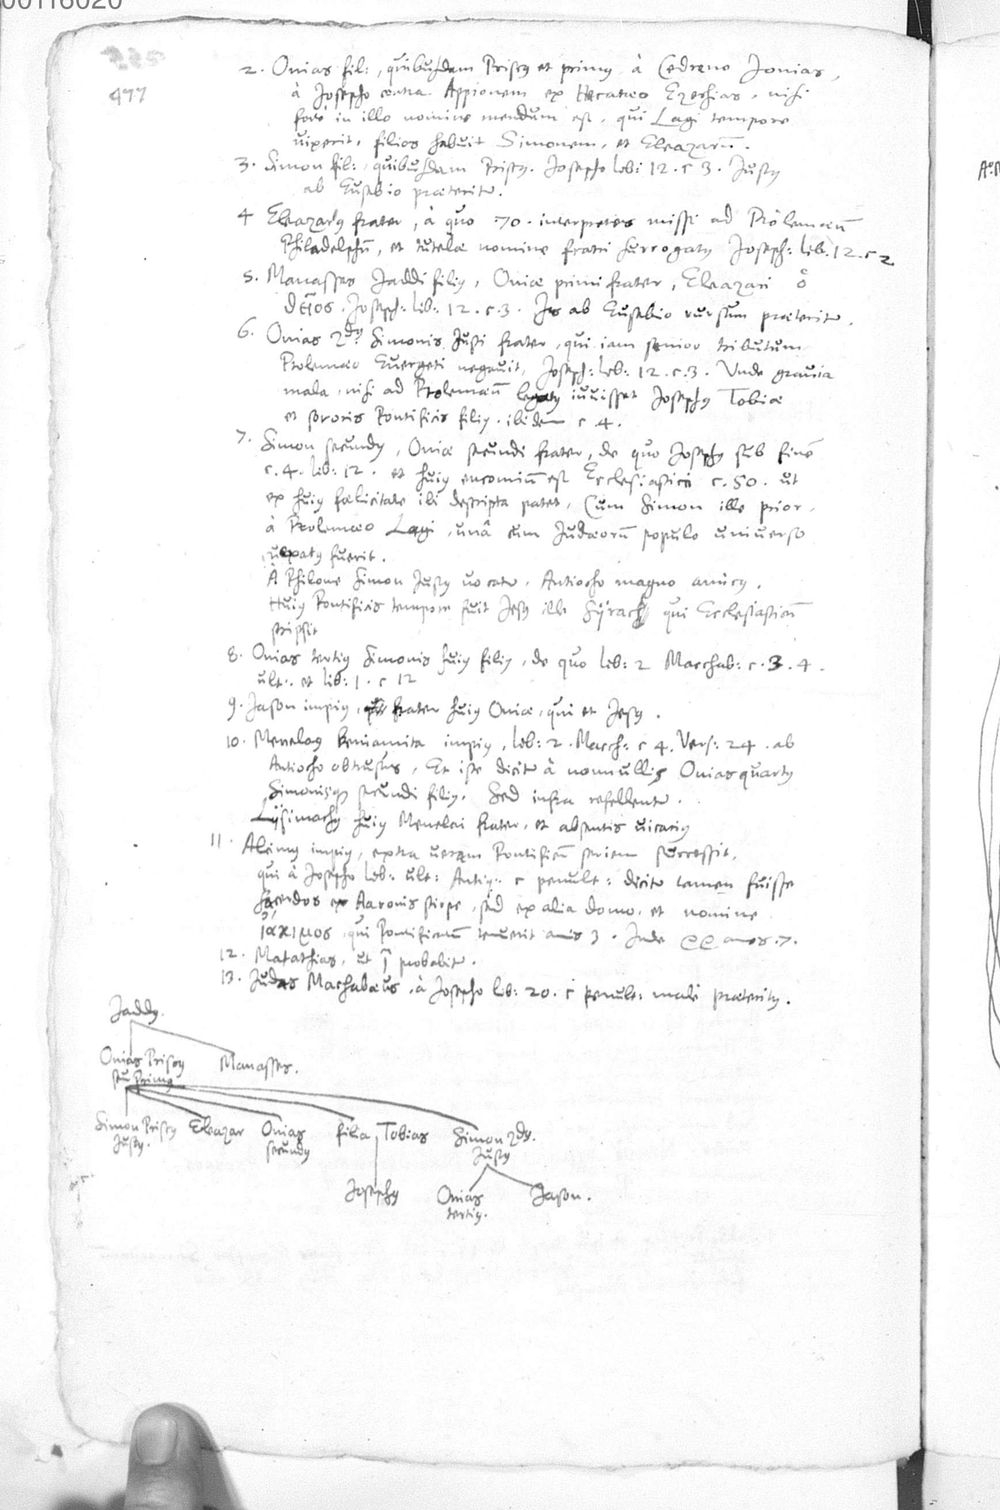 00116020
225
477
2. Onias fil:, quibusdam Priscus et primus, à Cedreno Jonias,
à Josepho contra Appionem ex Hecataeo Ezechias, nisi
forè in illo nomine mendum est, qui Lagi tempore
vixerit, filios habuit Simonem, et Eleazarū.
3. Simon fil:, quibusdam Priscus. Josepho lib: 12. c 3. Justus
ab Eusebio praeteritr.
4 Eleazarus frater, à quo 70. interpretes missi ad Ptolemaeū
Philadelphū, et tutelae nomine fratri surrogatus Joseph: lib. 12. c 2
5. Manasses Jaddi filius, Oniae primi frater, Eleazari ὁ
θεῖος. Joseph: lib: 12. c. 3. Is ab Eusebio rursum praeteritr.
6. Onias 2dus. Simonis Justi frater, qui iam senior tributum
Ptolemaeo Euergeti negauit, Joseph: lib: 12. c. 3. Vnde grauia
mala, nisi ad Ptolemaeū legatus iuuisset Josephus Tobiae
et sororis Pontificis filius. ibidem c. 4.
7. Simon secundus, Oniae secundi frater, de quo Josephus sub finē
c. 4. lib: 12. et huius encomiū est Ecclesiastici c. 50. ut
ex huius foelicitate ibi descripta patet, Cum Simon ille prior,
à Ptolemaeo Lagi, unà cum Judaeorū populo uniuerso
fuerit.
A Philone Simon Justus uocatr, Antiocho magno amicus.
Huius Pontificis tempore fuit Jesus ille Sÿrach qui Ecclesiasticū
scripsit
8. Onias tertius Simonis huius filius, de quo lib: 2 Macchab: c. 3. 4.
ult. et lib: 1. c 12
9. Jason impius, frater huius Oniae, qui et Jesus.
10. Menelaus Beniamita impius, lib: 2. Macch: c 4. Vers: 24. ab
Antiocho obtrusus, Et iste dicitr à nonnullis Onias quartus
Simonisque secundi filius, Sed infra refellentr.
Lÿsimachus huius Menelai frater, et absentis uicarius
11. Alcimus impius, extra ueram Pontificū seriem successit,
qui à Josepho lib: ult: Antiq: c penult: dicitr tamen fuisse
sacerdos ex Aaronis stirpe, sed ex alia domo, et nomine
ἰάκιμος, qui Pontificatū tenuerit anis 3. Inde annos. 7.
12. Matathias, ut probabitr.
13. Judas Machabaeus, à Josepho lib: 20. c penult: malè praeteritus.
Jaddus.
Onias Priscus
seu Primus
Manasses.
Simon Priscus
Justus.
Eleazar
Onias
secundus
filia
Tobias
Simon 2dus.
Justus
Josephus
Onias
tertius.
Jason.